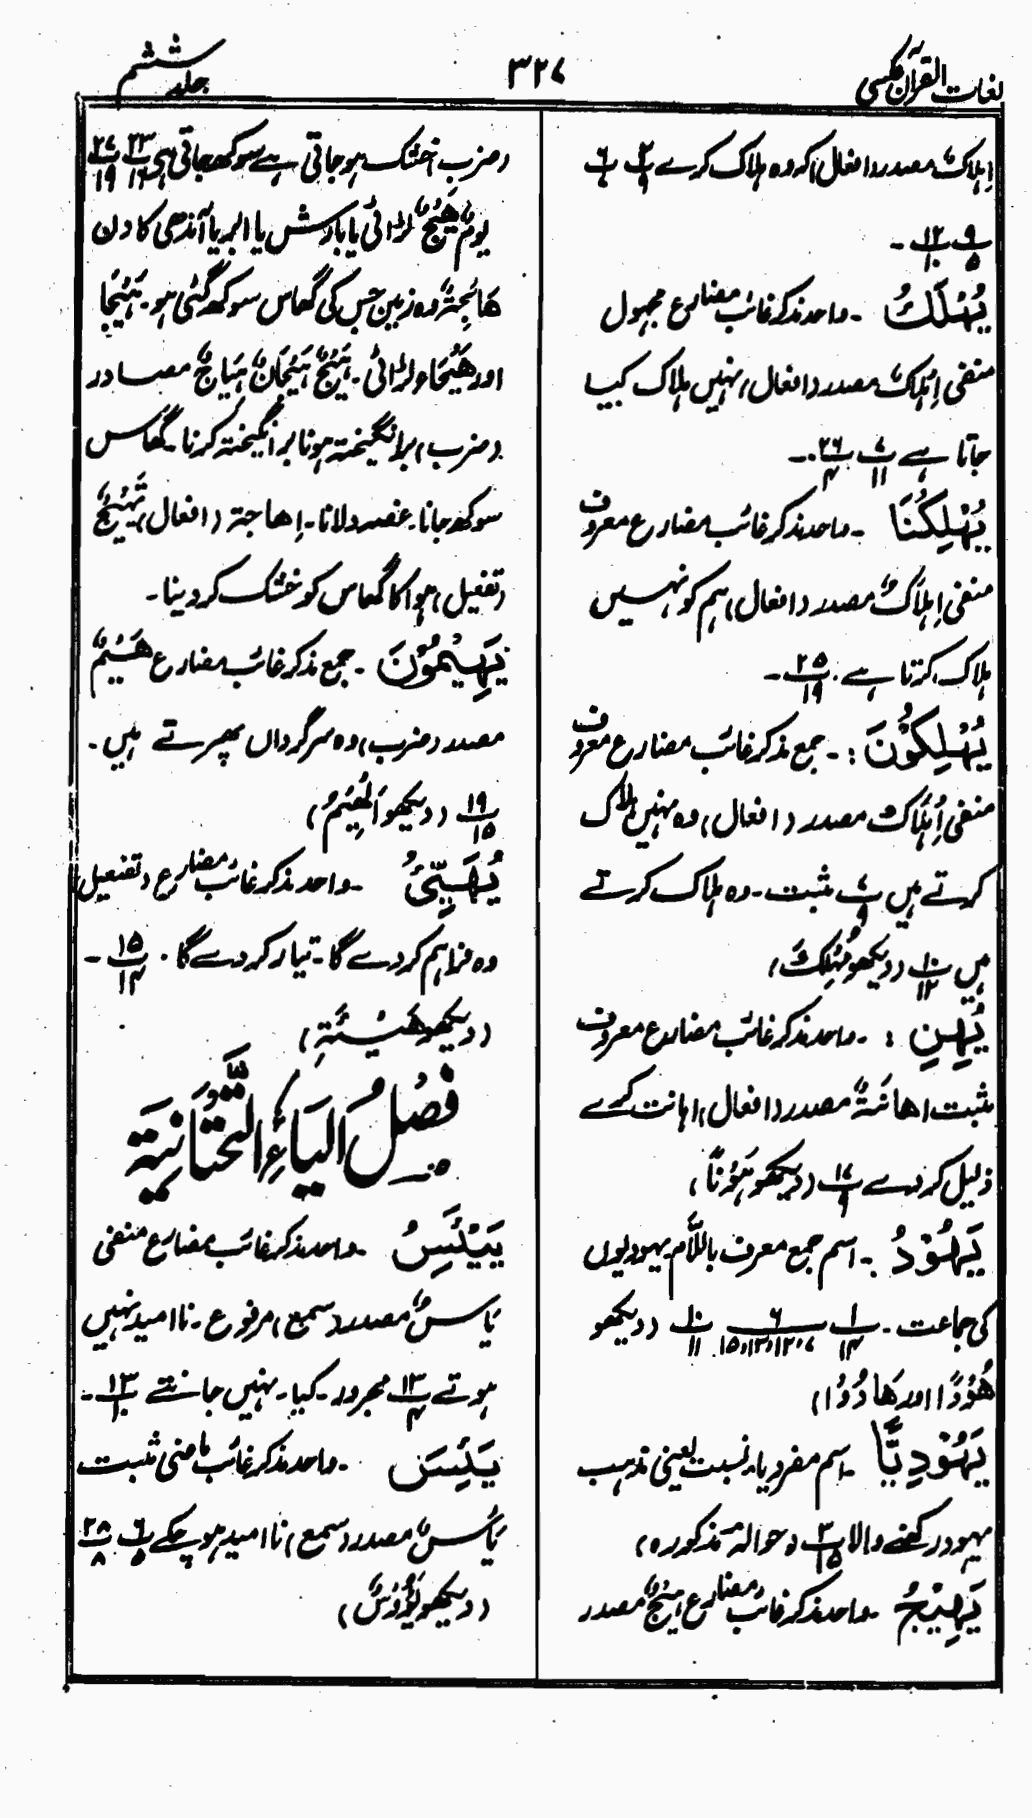 لغات القرآن عکسی
۳۲۷
جلد ششم
اِہلاکٌ مصدر (افعال) کہ وہ ہلاک کرے پ۲/۹ پ۶/۷
پ۹/۵ پ۱۲/۱۰ ۔
یُہْلَکُ ۔ واحد مذکر غائب مضارع مجہول
منفی اِہْلَاکٌ مصدر (افعال) نہیں ہلاک کیا
جاتا ہے پ۷/۱۱ پ۲۶/۴ ۔
یُہْلِکُنَا ۔ واحد مذکر غائب مضارع معروف
منفی اِہلَاکٌ مصدر (افعال) ہم کو نہیں
ہلاک کرتا ہے ۔ پ۲۵/۱۹ ۔
یُہْلِکُوْنَ :۔ جمع مذکر غائب مضارع معروف
منفی اِہْلَاکٌ مصدر (افعال) وہ نہیں ہلاک
کرتے ہیں پ۷/۹ مثبت ۔ وہ ہلاک کرتے
ہیں پ۲۰/۱۲ (دیکھو مُہْلِکَ)
یُہِنِ :۔ واحد مذکر غائب مضارع معروف
مثبت اھانَۃٌ مصدر (افعال) اہانت کرے
ذلیل کر دے پ۱۷/۹ (دیکھو ہَوْنًا)
یَہُوْدُ ۔ اسم جمع معرف باللّام یہودیوں
کی جماعت ۔ پ۱/۱۴ پ۶/۷،۱۲،۱۳،۱۵ پ۱۰/۱۱ (دیکھو
ھُوْدًا اور ھَادُوْا)
یَہُوْدِیًّا ۔ اسم مفرد یا نسبت یعنی مذہب
یہود رکھنے والا پ۳/۱۵ (حوالۂ مذکورہ)
یَہِیْجُ ۔ واحد مذکر غائب مضارع ہَیْجٌ مصدر
(ضرب) خشک ہو جاتی ہے سوکھ جاتی ہے پ۲۳/۱۶ پ۲۷/۱۹
یومُ ھَیْجٌ لڑائی یا بارش یا ابر یا آندھی کا دن
ھَائِجَۃٌ وہ زمین جس کی گھاس سوکھ گئی ہو ۔ ہَیْجَا
اور ھَیْجَاء لڑائی ۔ ہَیْجٌ ہَیَجَانٌ ہِیَاجٌ مصادر
(ضرب) برانگیختہ ہونا برانگیختہ کرنا ۔ گھاس
سوکھ جانا ۔ غصہ دلانا ۔ اِھاجۃ (افعال) تَہْیِیْجٌ
(تفعیل) ہوا کا گھاس کو خشک کر دینا ۔
یَہِیْمُوْنَ ۔ جمع مذکر غائب مضارع ھَیْمٌ
مصدر (ضرب) وہ سرگرداں پھرتے ہیں ۔
پ۱۹/۱۵ (دیکھو اَلْہِیْمُ)
یُہَیِّئُ ۔ واحد مذکر غائب مضارع (تفعیل)
وہ فراہم کر دے گا ۔ تیار کر دے گا ۔ پ۱۵/۱۴ ۔
(دیکھو ھَیْئَۃِ)
فَصْلُ الیَاءِ التَّحْتَانِیَّۃِ
یَیْئَسُ ۔ واحد مذکر غائب مضارع منفی
یَأسٌ مصدر (سمع) مرفوع ۔ ناامید نہیں
ہوتے پ۱۳/۴ مجرور ۔ کیا ۔ نہیں جانتے پ۱۳/۱۰ ۔
یَئِسَ ۔ واحد مذکر غائب ماضی مثبت
یَأسٌ مصدر (سمع) ناامید ہو چکے پ۶/۵ پ۲۸/۸
(دیکھو یَؤُوْسٌ)